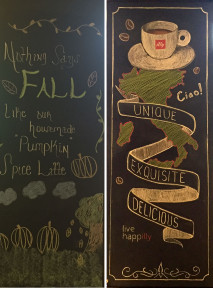 Nothing Says
FALL
Like our
homemade
Pumpkin
Spice Latte
illy
Ciao!
UNIQUE
EXQUISITE
DELICIOUS
live
happilly